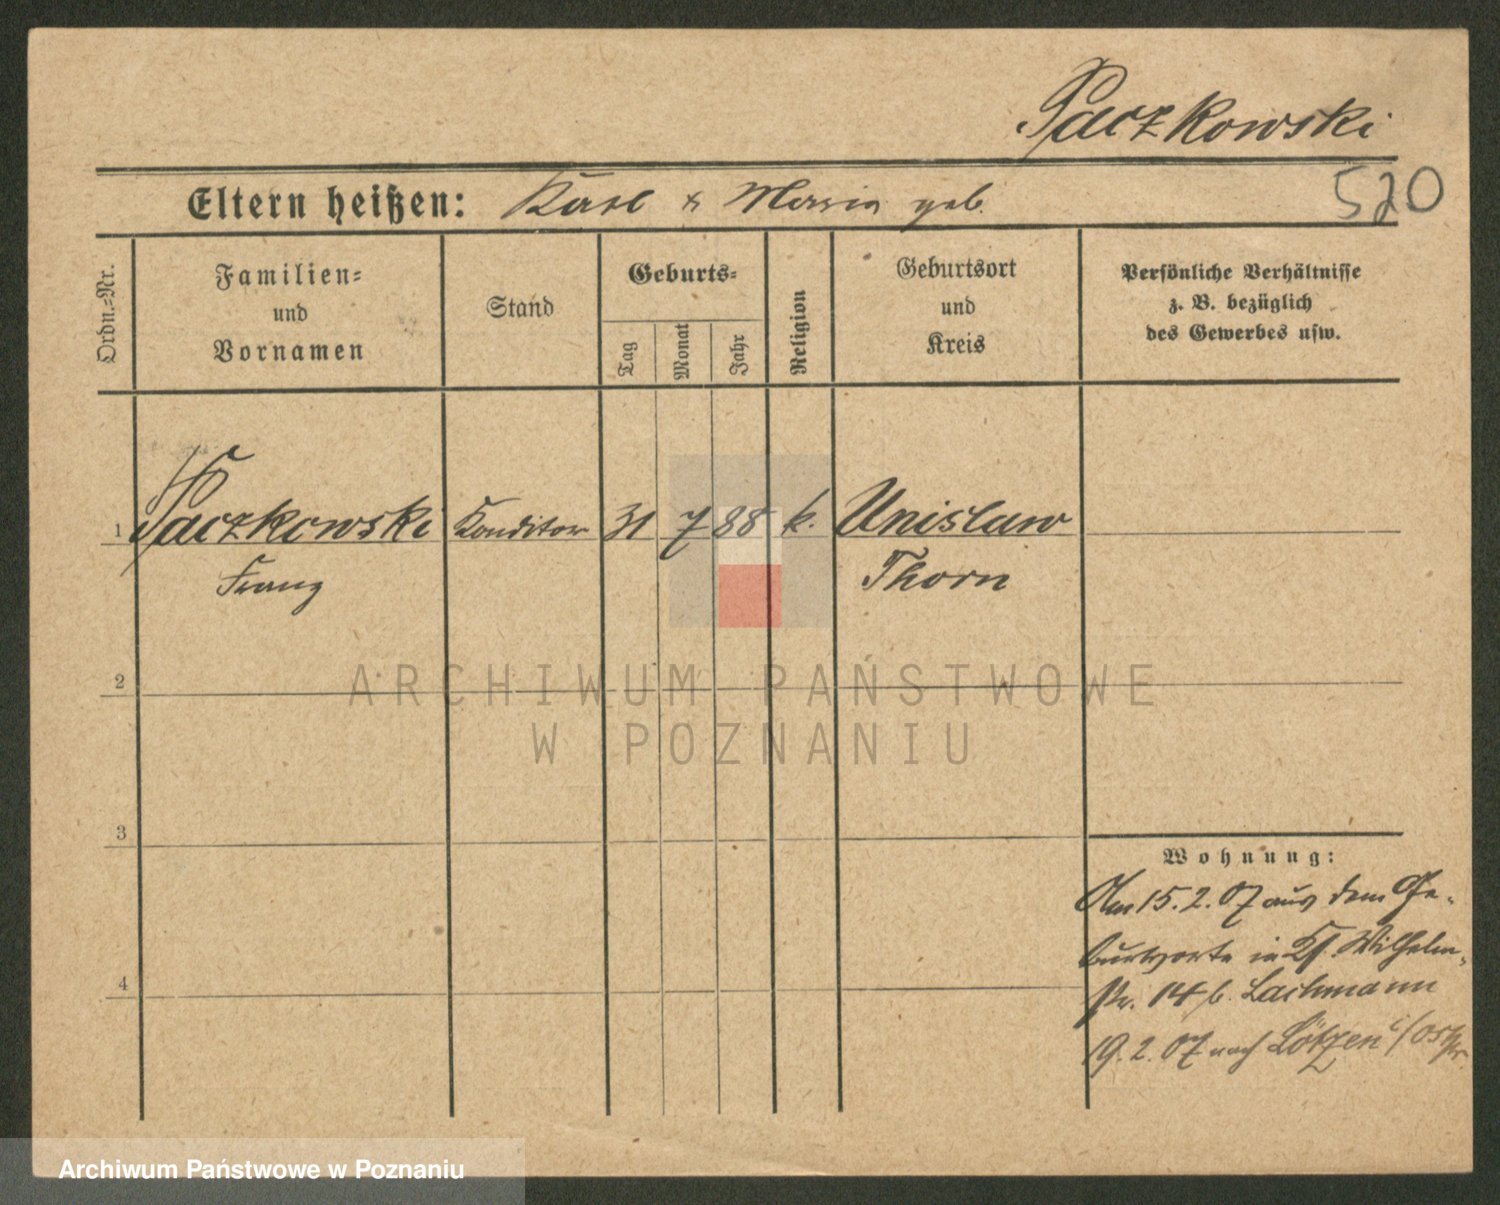 Paczkowski
520
Eltern heißen: Karl & Maria geb.
Ordn.-Nr.
Familien-
und
Vornamen
Stand
Geburts-
Tag
Monat
Jahr
Religion
Geburtsort
und
Kreis
Persönliche Verhältnisse
z. B. bezüglich
des Gewerbes usw.
1 Paczkowski Konditor 31 7 88 k. Unislaw
Franz Thorn
ARCHIWUM PAŃSTWOWE
W POZNANIU
2
3
4
Wohnung:
Am 15.2.07 aus dem Ge-
burtsorte in Wilhelm-
str. 14 b. Lachmann
19.2.07 nach Lötzen i/Ostpr.
Archiwum Państwowe w Poznaniu